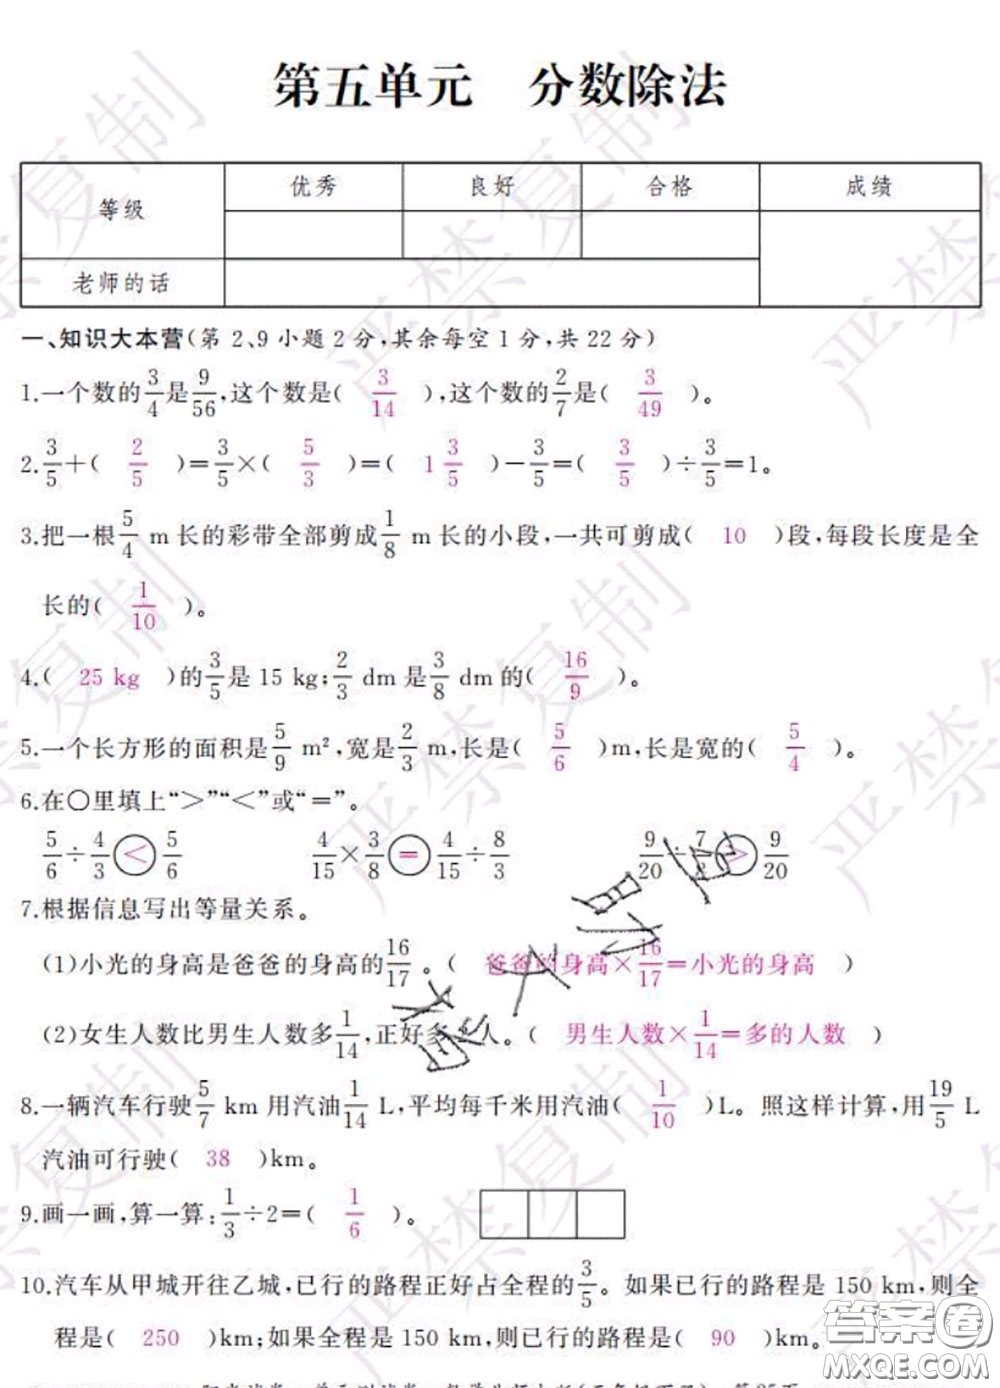 第五单元 分数除法
等级 优秀 良好 合格 成绩
老师的话
一、知识大本营(第2、9小题2分,其余每空1分,共22分)
1.一个数的3/4是9/56,这个数是( 3/14 ),这个数的2/7是( 3/49 )。
2.3/5+( 2/5 )=3/5×( 5/3 )=( 1 3/5 )-3/5=( 3/5 )÷3/5=1。
3.把一根5/4 m长的彩带全部剪成1/8 m长的小段,一共可剪成( 10 )段,每段长度是全
长的( 1/10 )。
4.( 25 kg )的3/5是15 kg;2/3 dm是3/8 dm的( 16/9 )。
5.一个长方形的面积是5/9 m²,宽是2/3 m,长是( 5/6 )m,长是宽的( 5/4 )。
6.在○里填上“>”“<”或“=”。
5/6÷4/3<5/6 4/15×3/8=4/15÷8/3 9/20÷7/8>9/20
7.根据信息写出等量关系。
(1)小光的身高是爸爸的身高的16/17。( 爸爸的身高×16/17=小光的身高 )
(2)女生人数比男生人数多1/14,正好多2人。( 男生人数×1/14=多的人数 )
8.一辆汽车行驶5/7 km用汽油1/14 L,平均每千米用汽油( 1/10 )L。照这样计算,用19/5 L
汽油可行驶( 38 )km。
9.画一画,算一算:1/3÷2=( 1/6 )。
10.汽车从甲城开往乙城,已行的路程正好占全程的3/5。如果已行的路程是150 km,则全
程是( 250 )km;如果全程是150 km,则已行的路程是( 90 )km。
严禁复制
答案圈
MXQE.COM